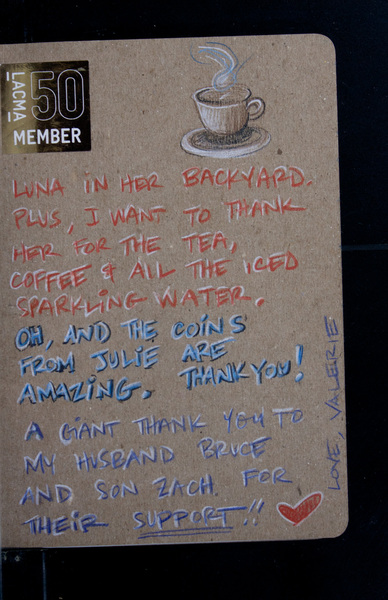 LACMA 50
MEMBER
LUNA IN HER BACKYARD.
PLUS, I WANT TO THANK
HER FOR THE TEA,
COFFEE & ALL THE ICED
SPARKLING WATER.
OH, AND THE COINS
FROM JULIE ARE
AMAZING. THANK YOU!
A GIANT THANK YOU TO
MY HUSBAND BRUCE
AND SON ZACH FOR
THEIR SUPPORT!!
LOVE, VALERIE